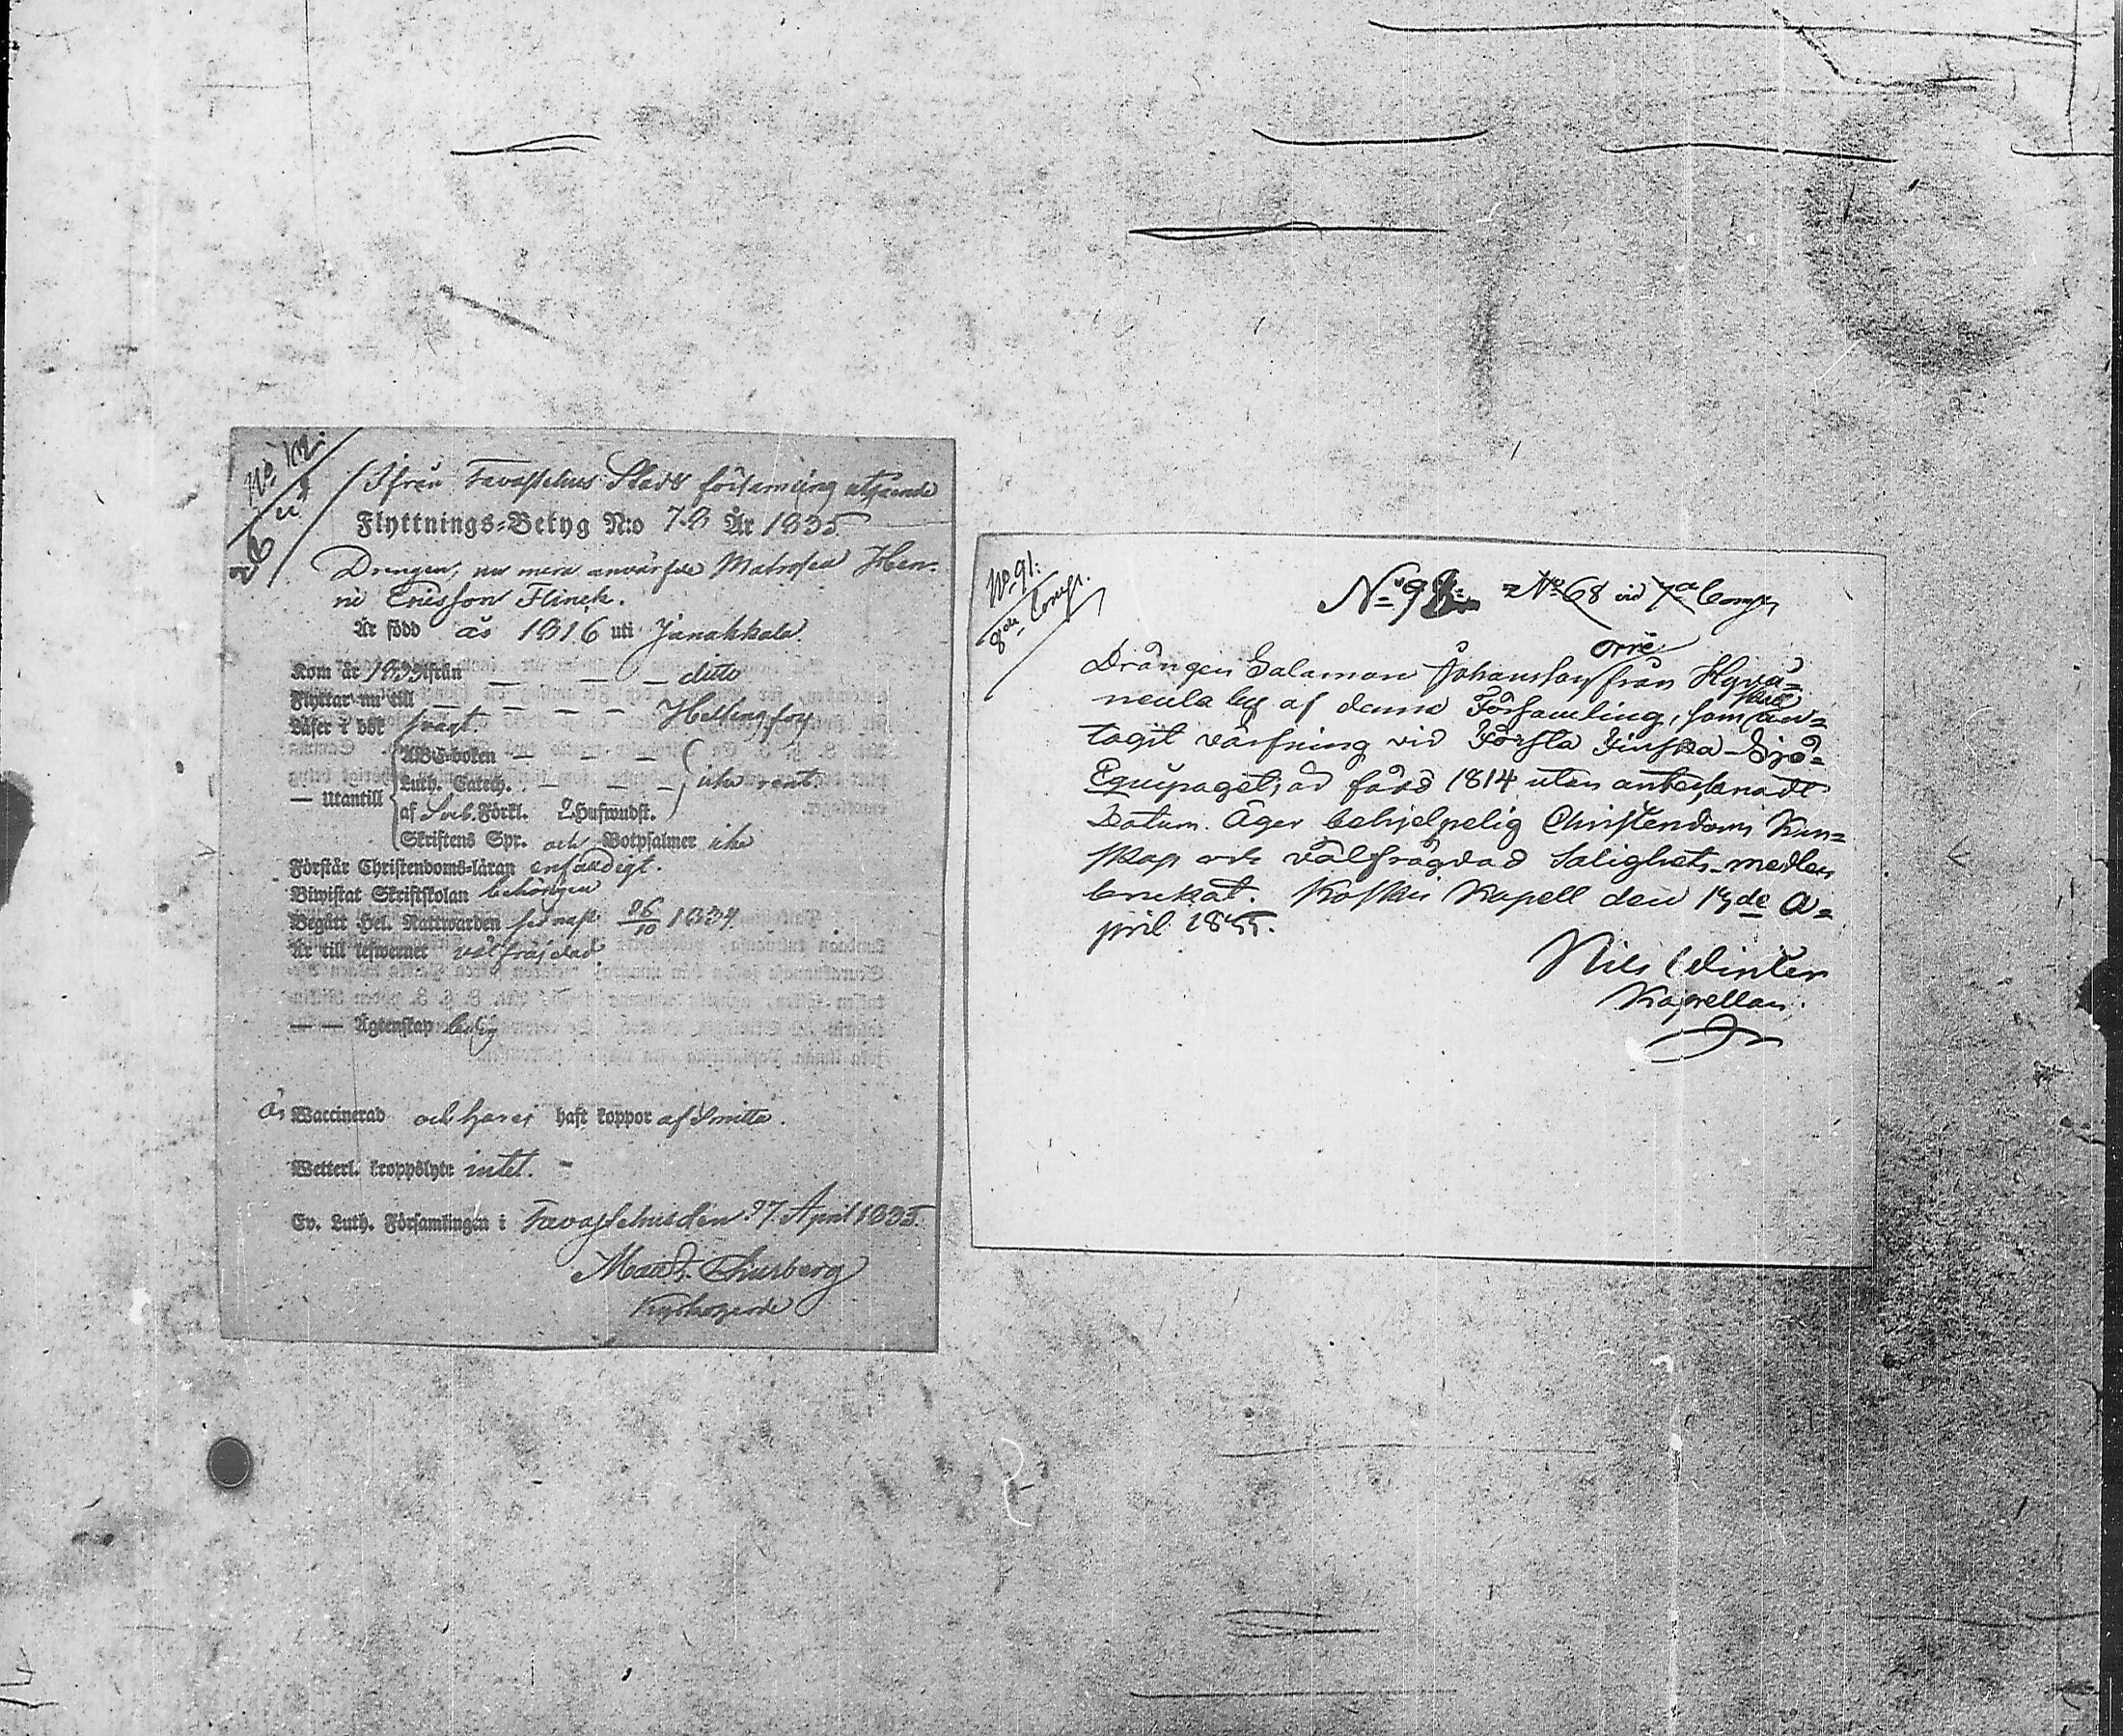 Ifrån Tavastehus Stads församling utgående
Flyttnings-Betyg N:o 78 År 1835
Drengen, nu mera anvärfde Matrosen Hen-
ric Ericsson Flinck.
Är född år 1816 uti Janakkala.
Kom år 1833 ifrån — — — ditto
Flyttar nu till — — — — Helsingfors
Läser i bok svagt.
— Utantill
ABC-boken — — —
Luth. Catech. — — — icke rent
af Sveb. Förkl. 2 Hufwudst.
Skriftens Spr. och Botpsalmer icke
Förstår Christendoms-läran enfaldigt.
Biwistat Skriftskolan behörigen
Begått Hel. Nattwarden sednast 26/10 1834.
Är till lefwernet välfräjdad
— — Ägtenskap ledig
är Waccinerad och haft koppor af Smitta.
Wetterl. kroppslyte intet. -
Ev. Luth. Församlingen i Tavastehus den 27 April 1835.
Churberg
Kyrkoherde
No 91:
8de Comp.
No 91. No 68 vid 7de Comp
Orre
Drängen Salamon Johansson från Hyvä-
neula by af denna Församling, som skall an-
tagit värfning vid Första Finska Sjö-
Equipaget, är född 1814 utan antecknadt
Datum. Äger behjelpelig Christendoms Kun-
skap och välfrägdad Salighets-medlen
brukat. Koskis Kapell den 17de A-
pril 1835.
Nils Winter
Kapellan.